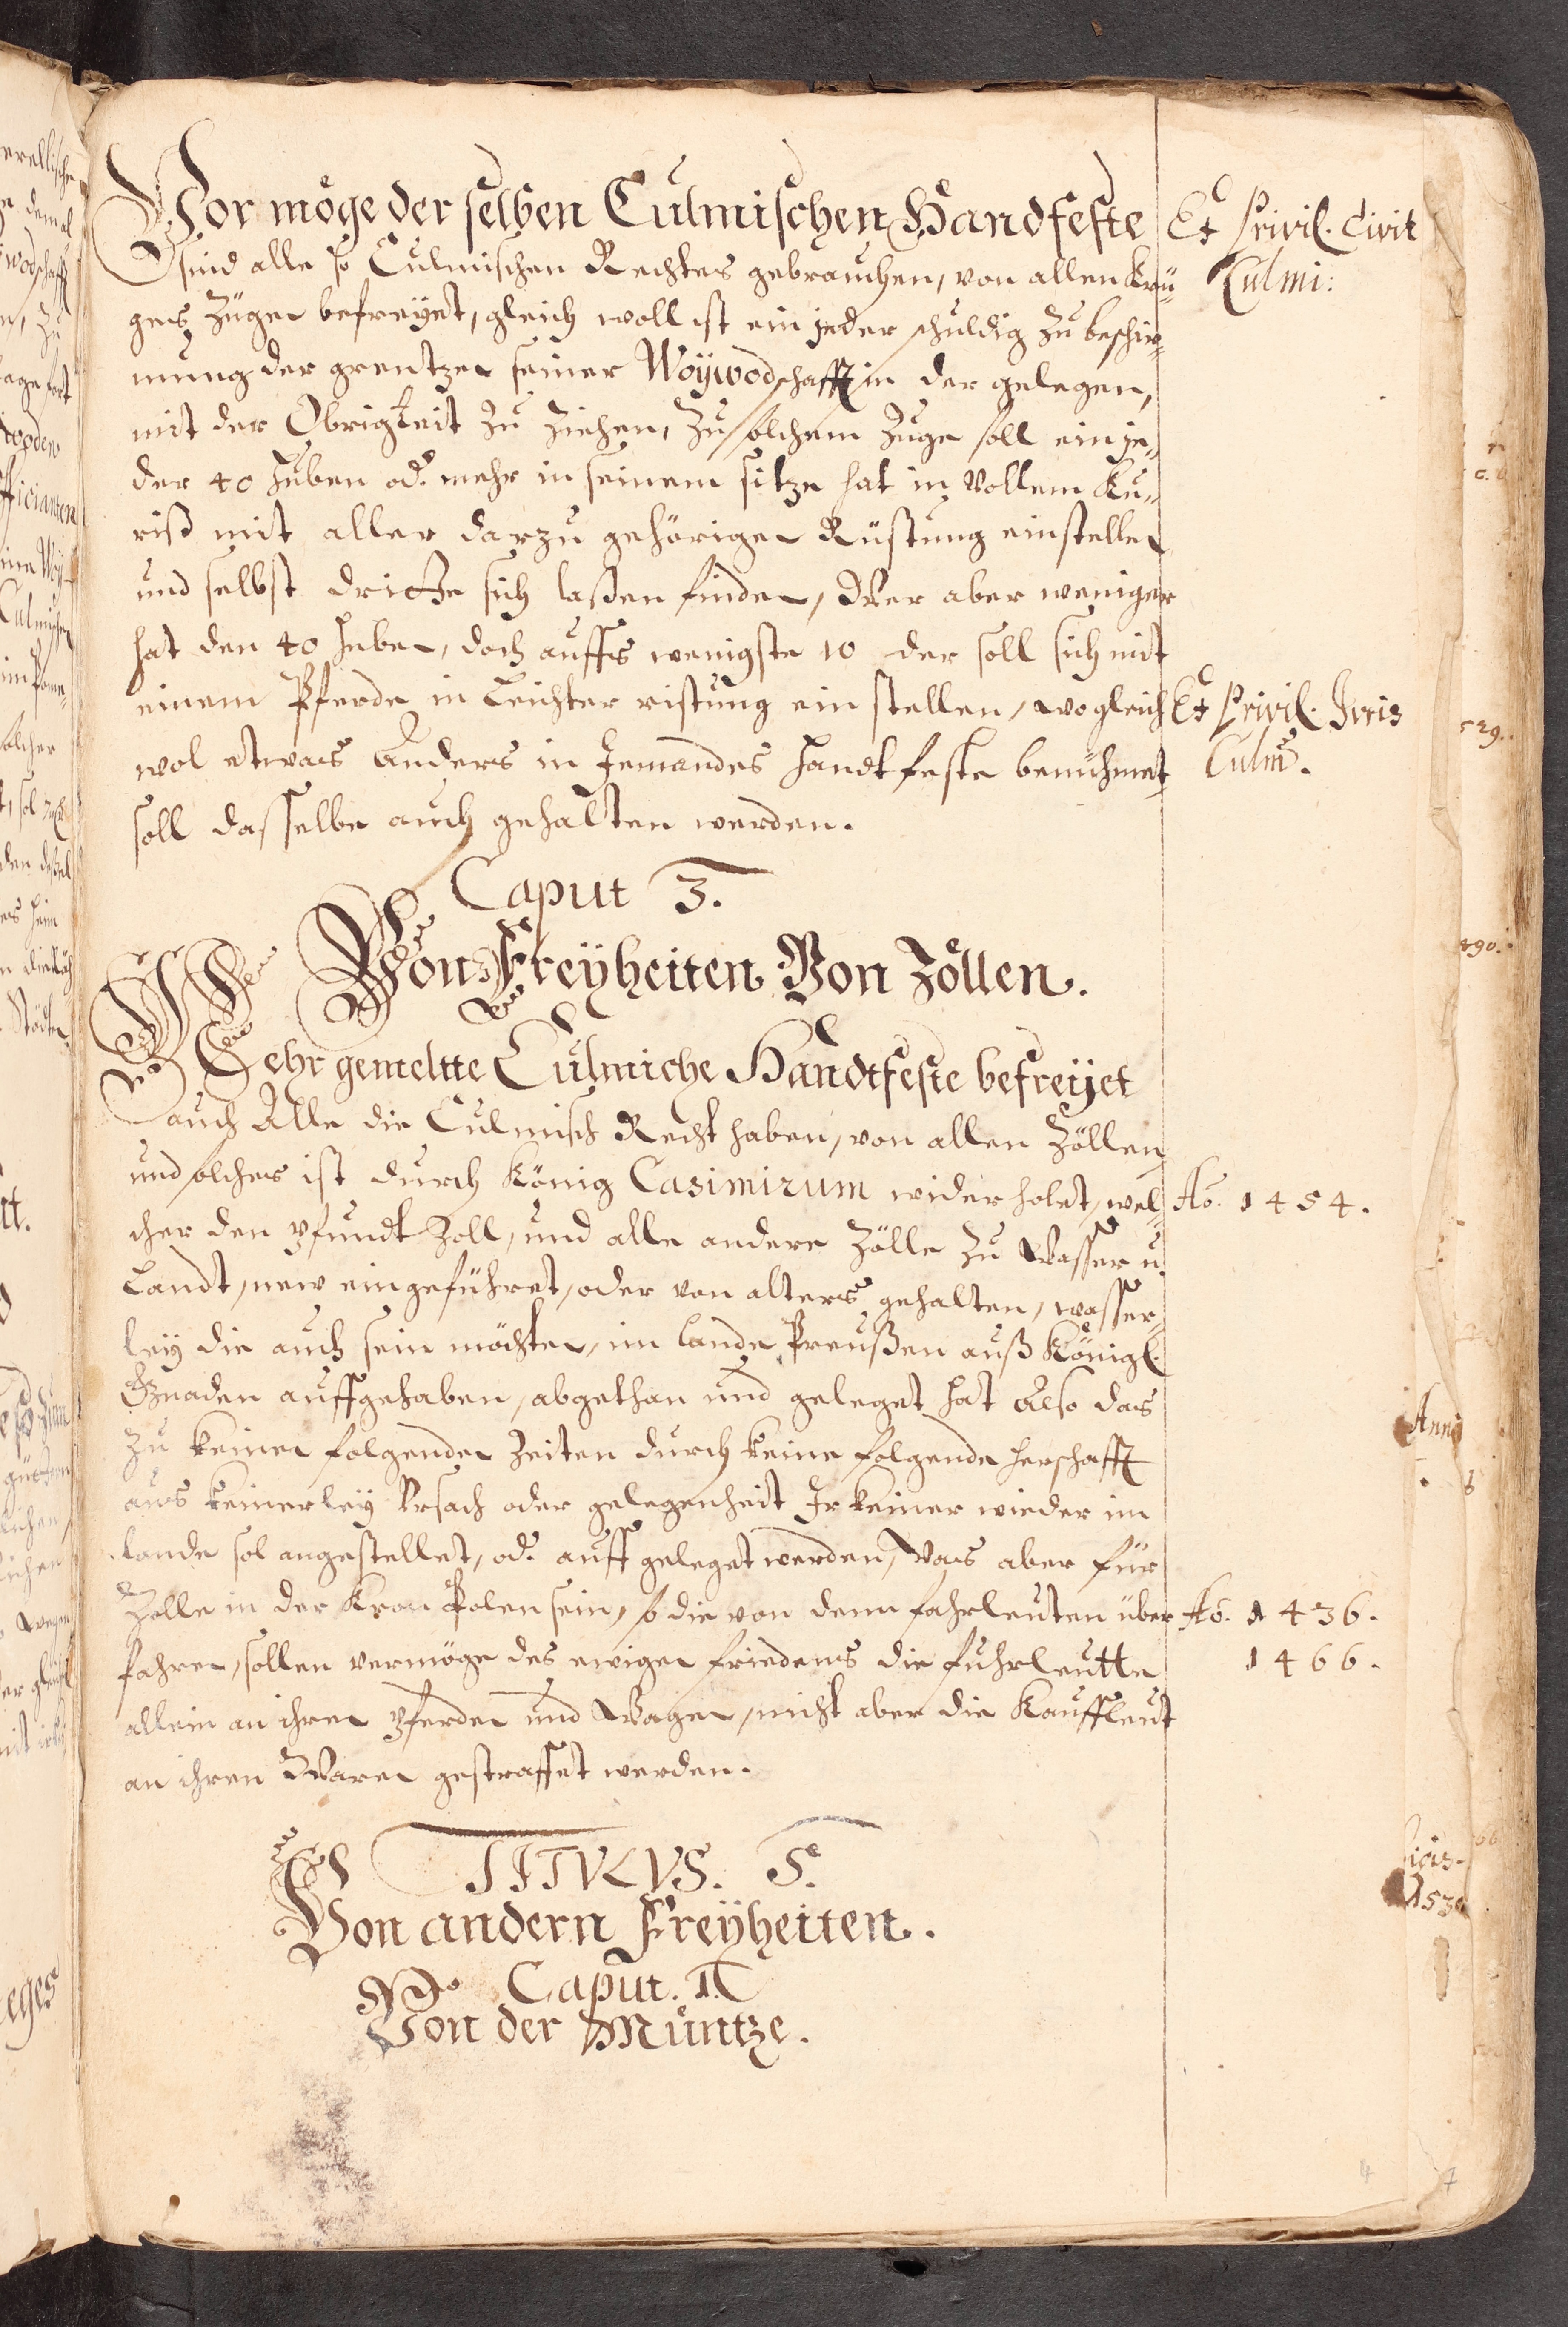 Vor möge der selben Culmischen Handfeste
Ex Privil. Civit
Culmi:
sind alle so Culmischen Rechtes gebrauchen, von allen Krü-
ges Züge befreyet, gleich woll ist ein jeder schuldig zu beschir-
mung der grentzen seiner Woÿwodschafft in der gelegen,
mit der Obrigkeit zu ziehen, Zu solchem Zuge soll ein je-
der 40 Huben od. mehr in seinem sitze hat in vollem Ku-
riß mit aller darzu gehörigen Rüstung einstellen
und selbst sich laßen finden, Wer aber weniger
hat den 40 huben, doch auffs wenigste 10 der soll sich mit
einem Pferde in Leichter ristung ein stellen, wo gleich
Ex Privil. Juris
Culm.
wol etwas Anders in Jemandes handtfeste benühmet
soll dasselbe auch gehalten werden.
Caput 3.
Von Freyheiten Von Zöllen.
Mehr gemeltte Culmiche Handtfeste befreÿet
auch Alle die Culmisch Recht haben, von allen Zöllen,
und solches ist durch König Casimirum wider holet, wel-
Aõ. 1454.
cher den Pfundt Zoll, und alle andere Zölle zu Wasser u.
Landt, new eingeführet, oder von alters gehalten, wasser-
leÿ die auch sein möchten, im lande Preußen auß Königl.
Gnaden auffgehaben, abgethan und geleget hat Also das
zu keinen folgenden Zeiten durch keine folgende herschafft
aus keinerleÿ Vrsach oder gelegenheit Jr keiner wieder im
lande sol angestellet, od. auff geleget werden, Was aber für
Zölle in der Kron Polen sein, so die von denn fahrleuten über
Aõ. 1436.
1466.
fahren, sollen vermöge des ewigen friedens die fuhrleutte
allein an ihren Pferden und Wagen, nicht aber die Kauffleut
an ihren Waren gestraffet werden.
TITVLVS. 5.
Von andern Freÿheiten.
Caput. 1.
Von der Müntze.